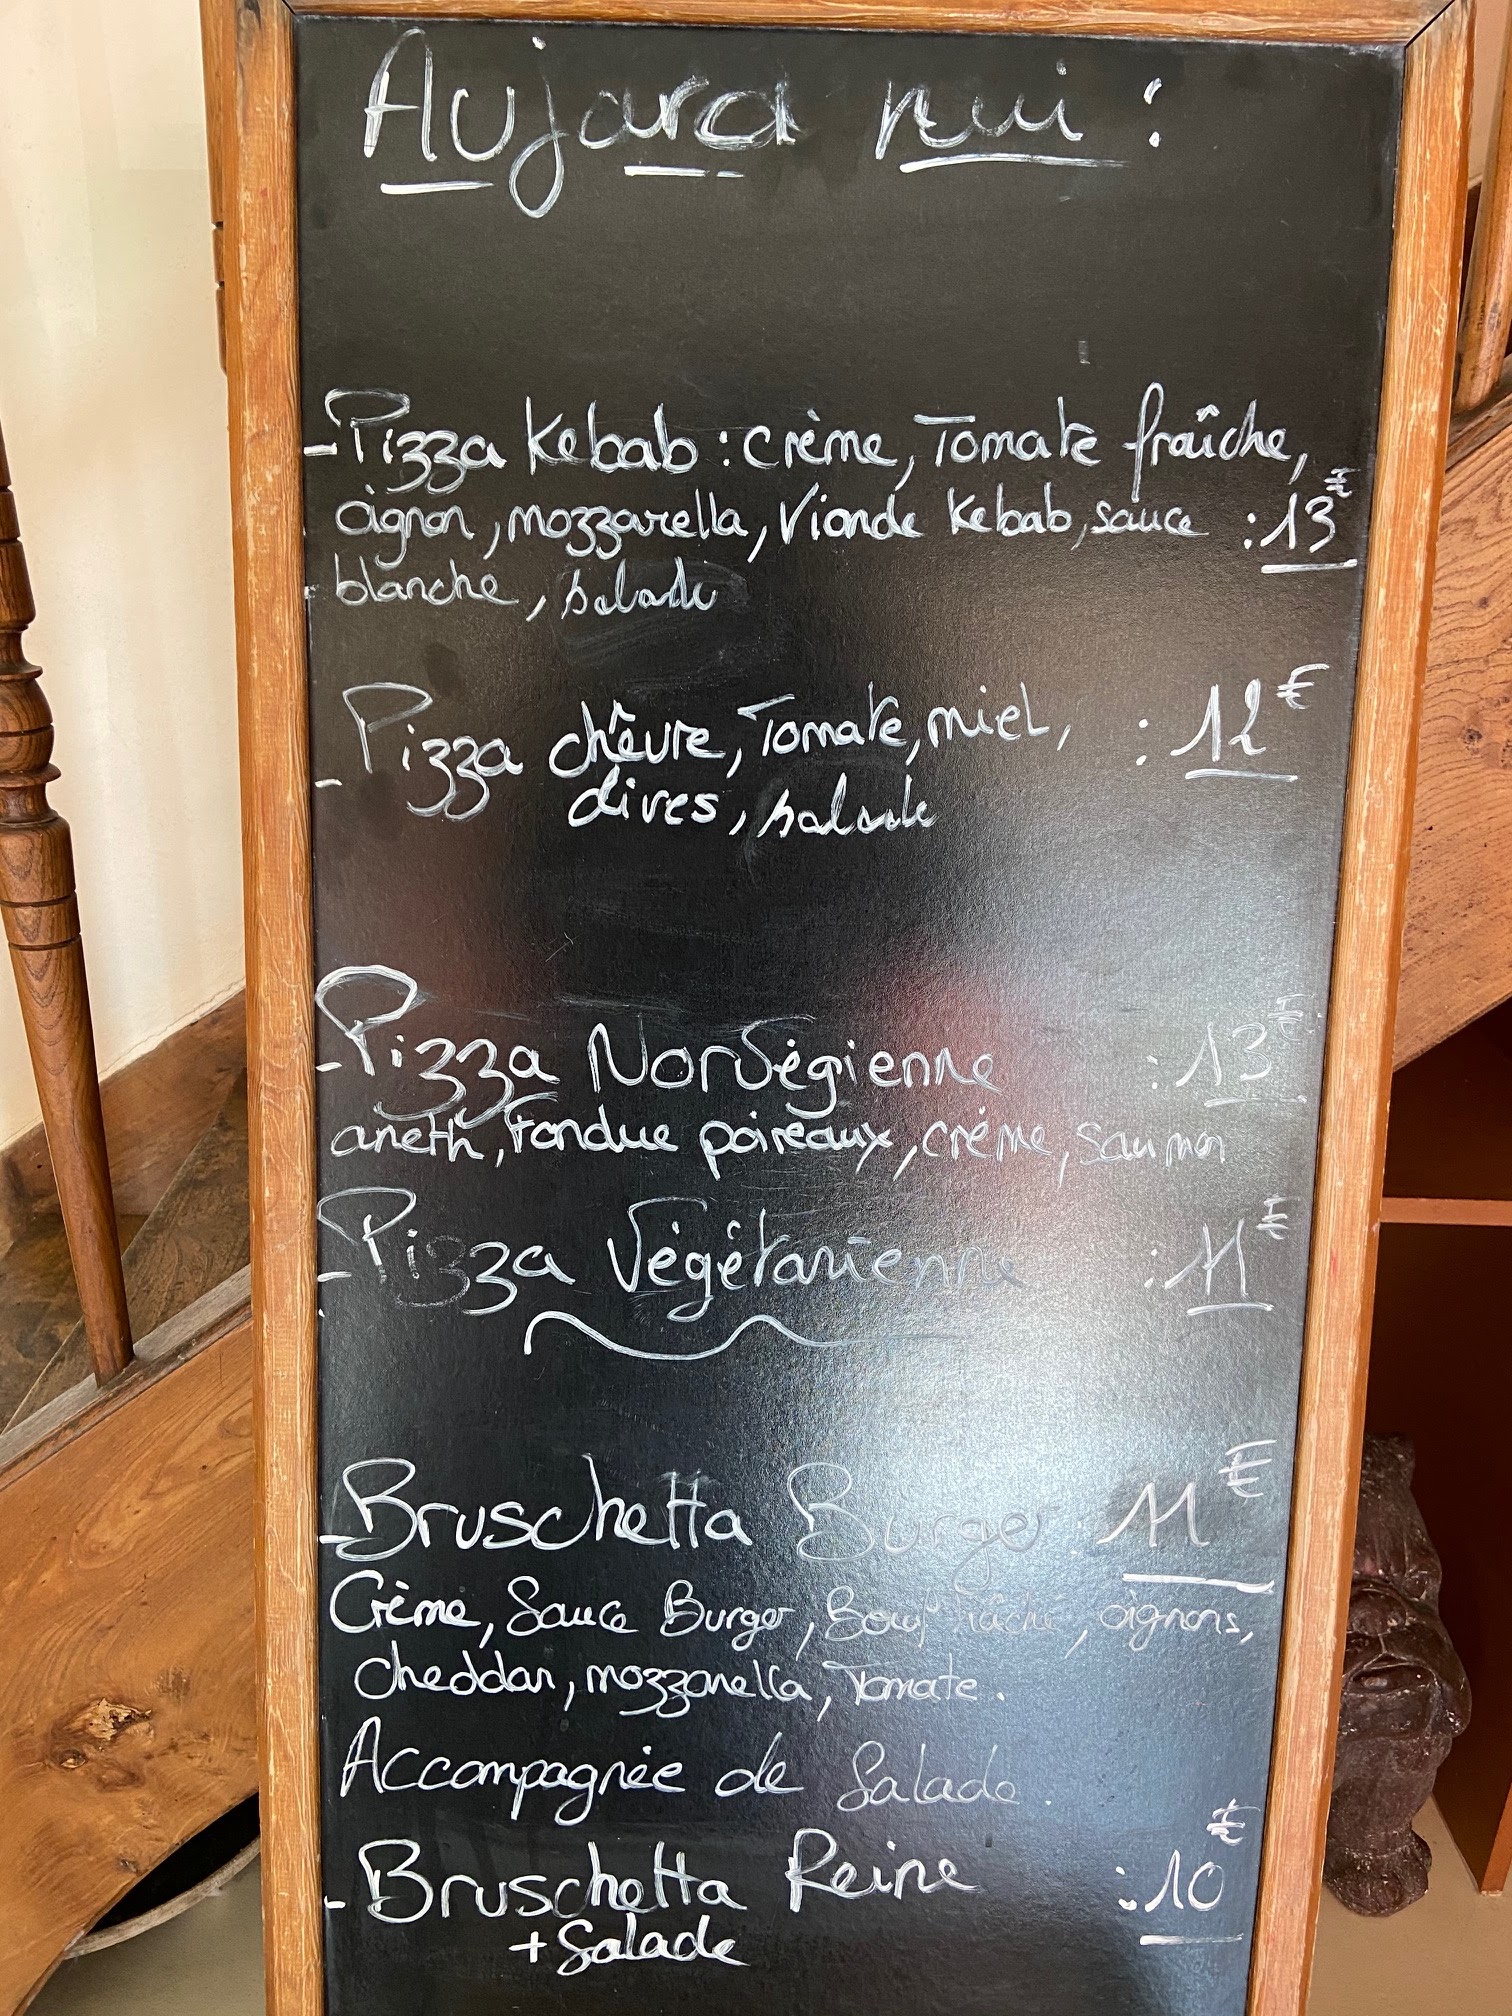 Aujard hui :
- Pizza Kebab : crème, Tomate fraîche,
oignon, mozzarella, Viande Kebab, sauce : 13€
blanche, salade
- Pizza chêvre, Tomate, miel, : 12€
olives, salade
- Pizza Norvégienne : 13€
aneth, Fondue poireaux, crème, saumon
- Pizza Végétarienne : 11€
- Bruschetta Burger 11€
Crème, Sauce Burger, Boeuf hâché, oignons,
cheddar, mozzarella, Tomate.
Accompagnée de Salade.
- Bruschetta Reine : 10€
+ Salade